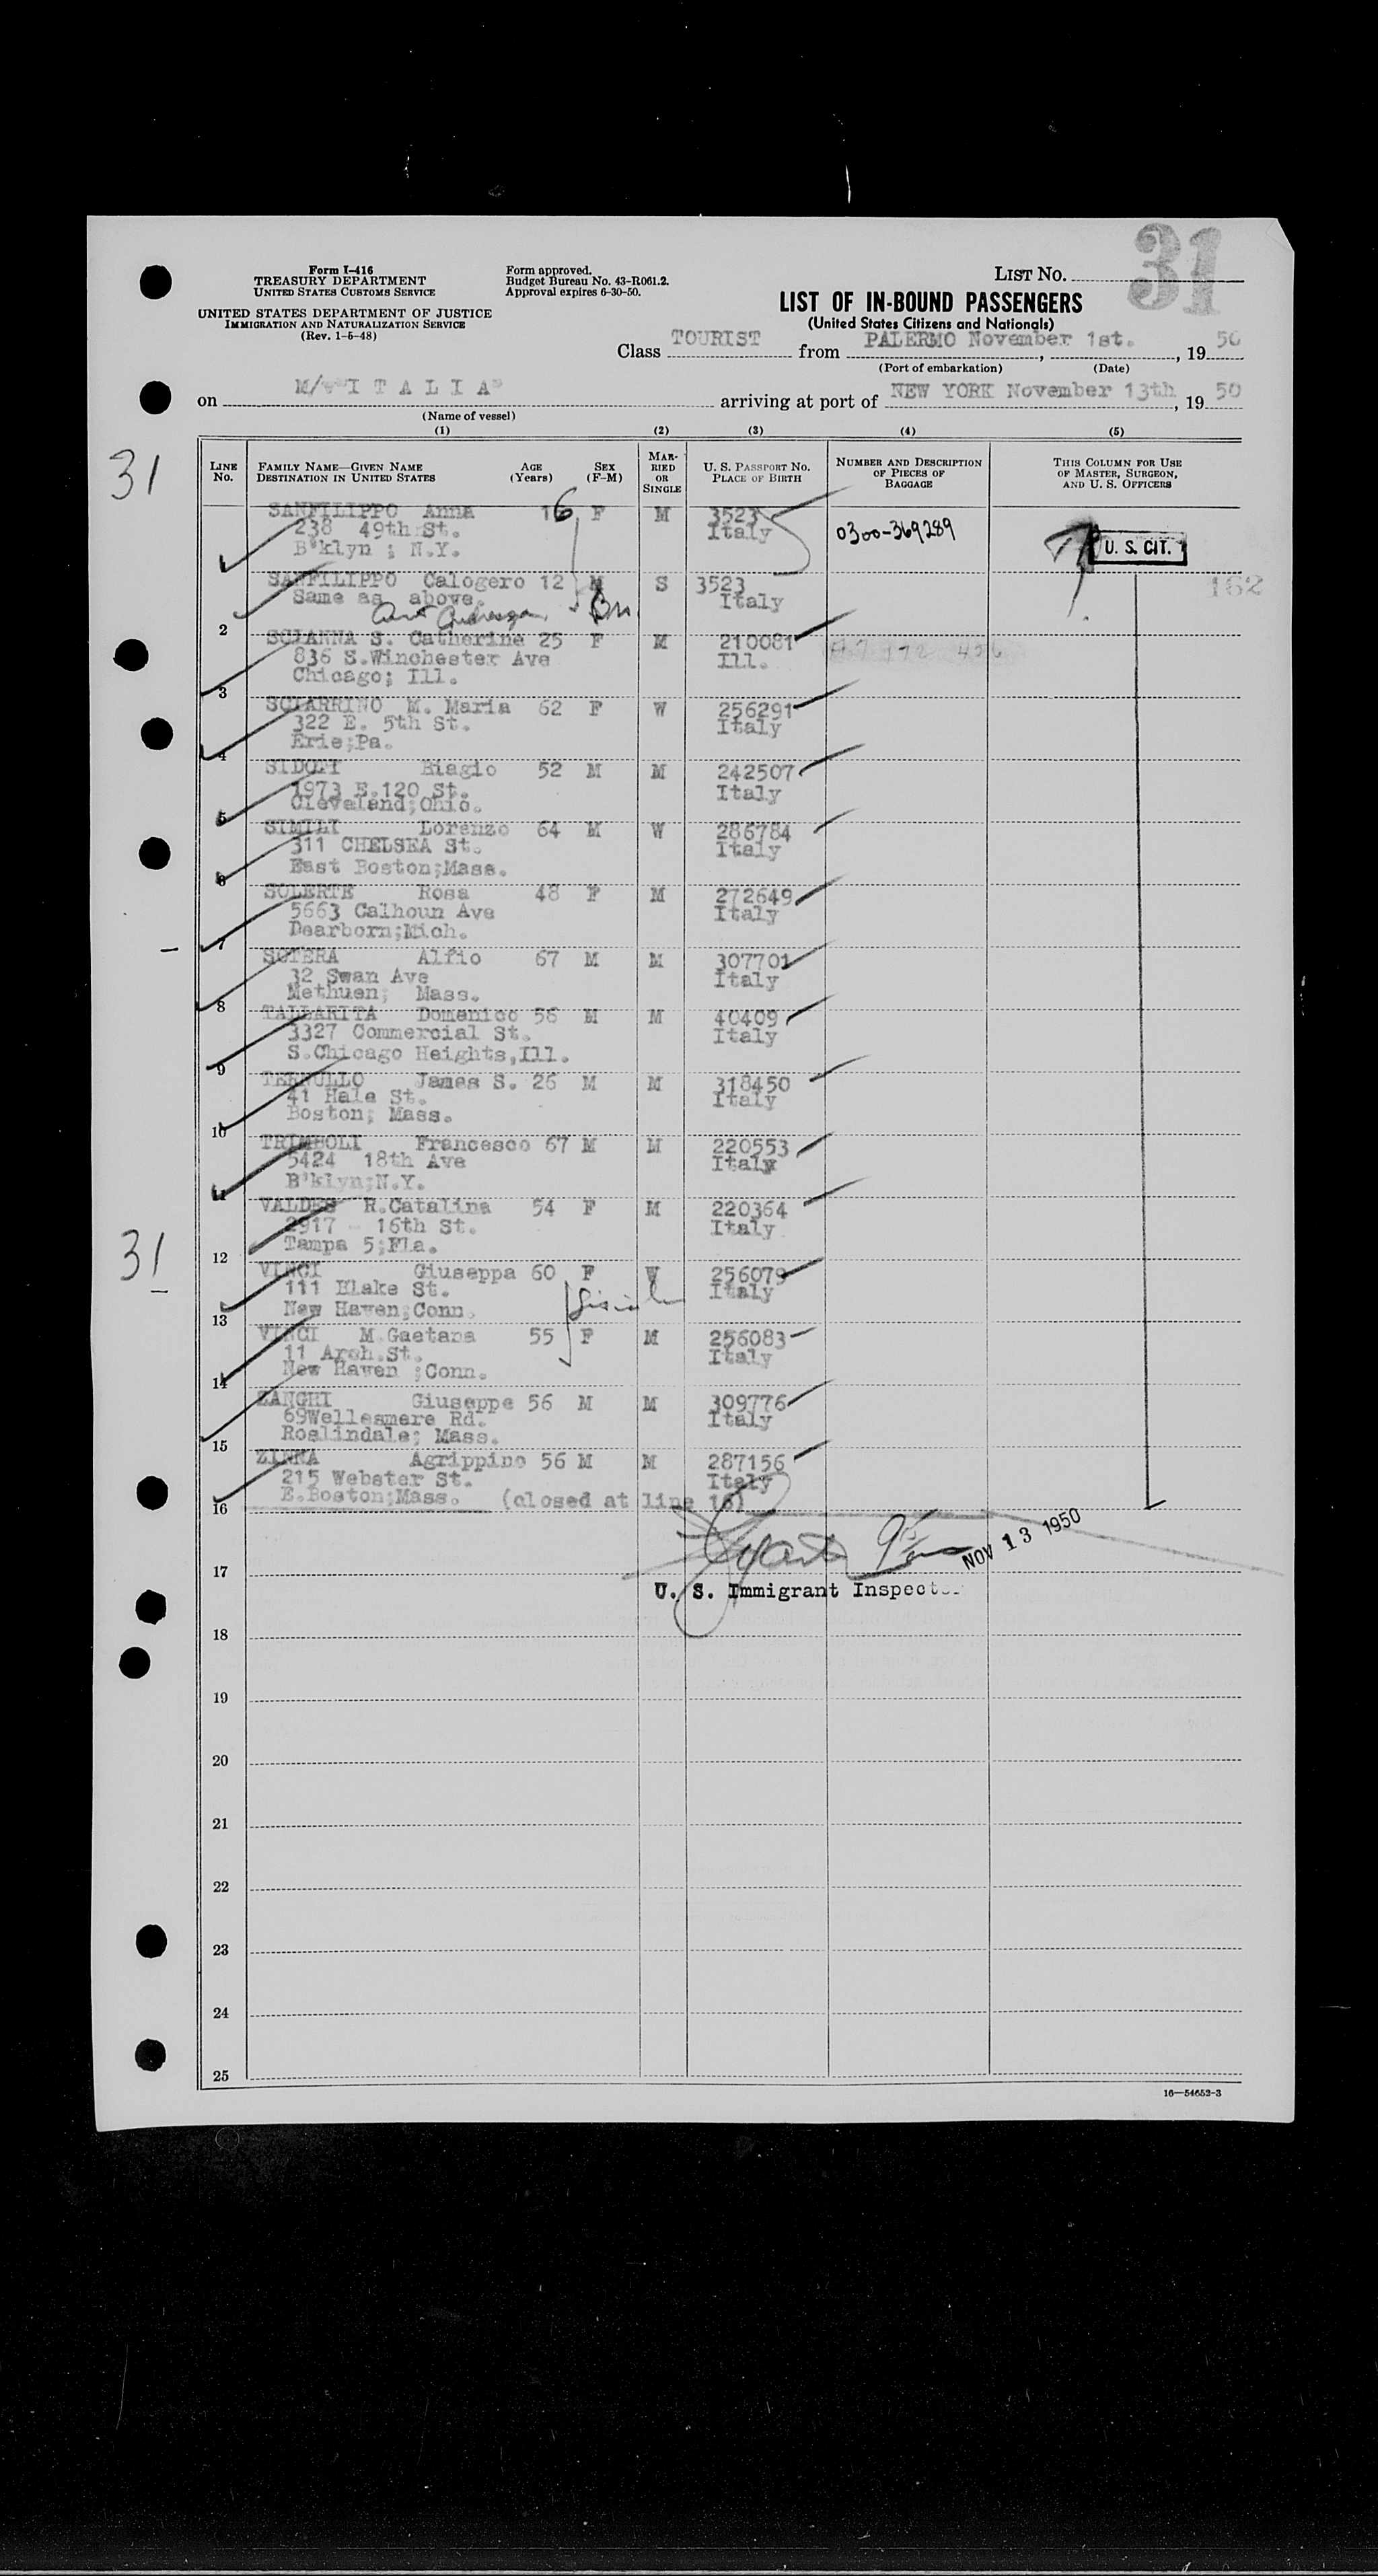 31
Form I-416
TREASURY DEPARTMENT
UNITED STATES CUSTOMS SERVICE
UNITED STATES DEPARTMENT OF JUSTICE
IMMIGRATION AND NATURALIZATION SERVICE
(Rev. 1-5-48)
Form approved.
Budget Bureau No. 43-R061.2.
Approval expires 6-30-50.
LIST NO.
LIST OF IN-BOUND PASSENGERS
(United States Citizens and Nationals)
Class TOURIST from PALERMO November 1st. , 19 50
(Port of embarkation) (Date)
on M/ "I T A L I A" arriving at port of NEW YORK November 13th , 19 50
(Name of vessel)
(1) (2) (3) (4) (5)
31
LINE No. FAMILY NAME—GIVEN NAME DESTINATION IN UNITED STATES AGE (Years) SEX (F-M) MARRIED OR SINGLE U. S. PASSPORT NO. PLACE OF BIRTH NUMBER AND DESCRIPTION OF PIECES OF BAGGAGE THIS COLUMN FOR USE OF MASTER, SURGEON, AND U. S. OFFICERS
SANFILIPPO Anna 16 F M 3523
238 49th St. Italy 0300-369289
B'klyn ; N.Y. U. S. CIT.
SANFILIPPO Calogero 12 M S 3523 162
Same as above. Italy
2
SCIANNA S. Catherine 25 F M 210081
836 S.Winchester Ave Ill.
Chicago; Ill.
3
SCIARRINO M. Maria 62 F W 256291
322 E. 5th St. Italy
Erie;Pa.
4
SIDOTI Biagio 52 M M 242507
1973 E.120 St. Italy
Cleveland;Ohio.
5
SIMILI Lorenzo 64 M W 286784
311 CHELSEA St. Italy
East Boston;Mass.
6
SOLERTE Rosa 48 F M 272649
5663 Calhoun Ave Italy
Dearborn;Mich.
7
SOTERA Alfio 67 M M 307701
32 Swan Ave Italy
Methuen; Mass.
8
TALLARITA Domenico 58 M M 40409
3327 Commercial St. Italy
S.Chicago Heights,Ill.
9
TERNULLO James S. 26 M M 318450
41 Hale St. Italy
Boston; Mass.
10
TRIMBOLI Francesco 67 M M 220553
5424 18th Ave Italy
B'klyn;N.Y.
11
VALDES R.Catalina 54 F M 220364
2917 - 16th St. Italy
Tampa 5;Fla.
12
31
VINCI Giuseppa 60 F W 256079
111 Blake St. Italy
New Haven;Conn.
13
VINCI M.Gaetana 55 F M 256083
11 Arch.St. Italy
New Haven ;Conn.
14
ZANGHI Giuseppe 56 M M 309776
69Wellesmere Rd. Italy
Roslindale; Mass.
15
ZINNA Agrippino 56 M M 287156
215 Webster St. Italy
E.Boston;Mass. (closed at line 16)
16
NOV 13 1950
17
U. S. Immigrant Inspector
18
19
20
21
22
23
24
25
16—54652-3